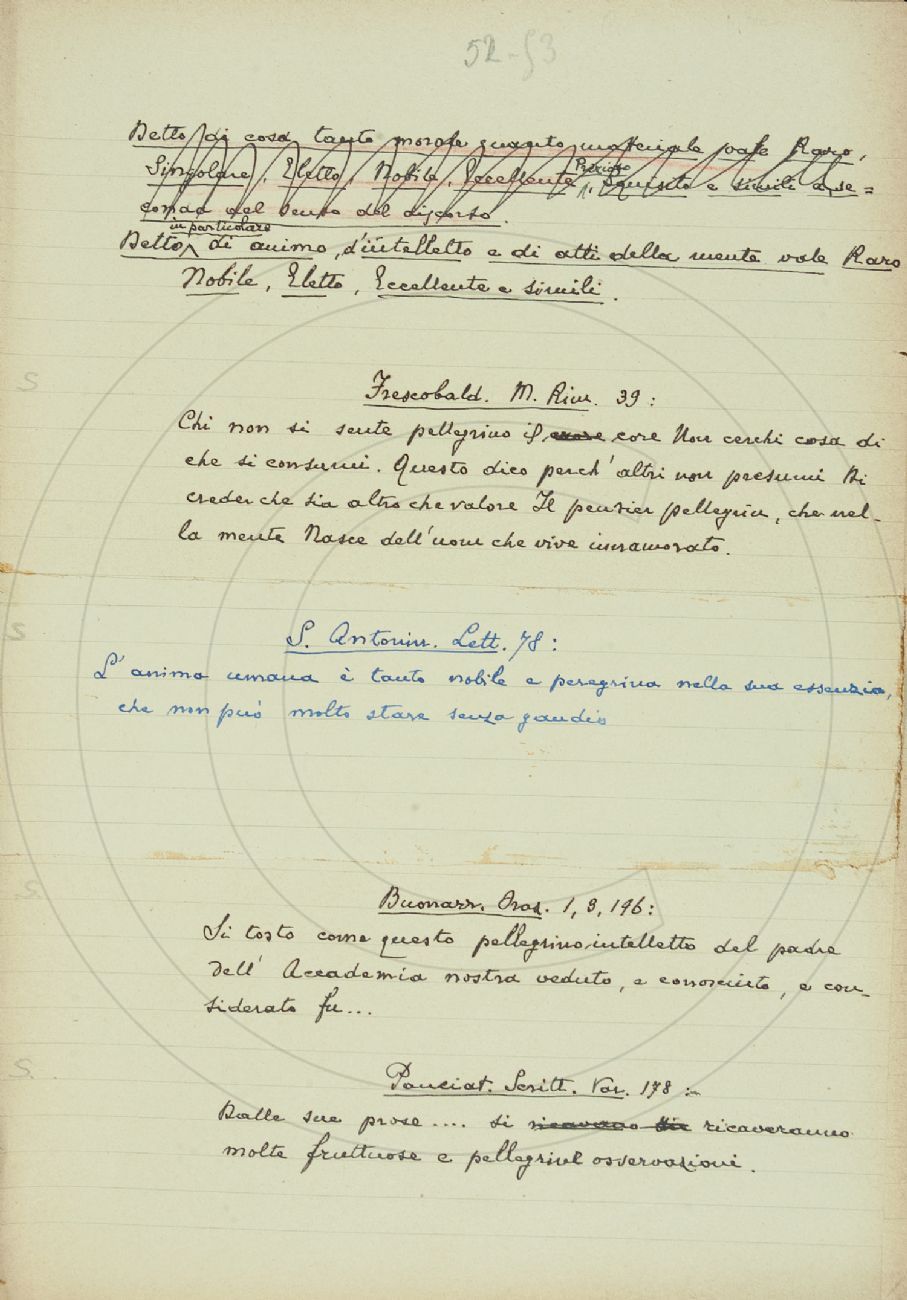 52-53
Detto di cosa tanto morale quanto materiale vale Raro,
Singolare, Eletto, Nobile, Eccellente, Prezioso, Squisito e simili a se=
conda del senso del discorso.
in particolare
Detto di animo, d'intelletto e di atti della mente vale Raro
Nobile, Eletto, Eccellente e simili.
S
Frescobald. M. Rim. 39:
Chi non si sente pellegrino il core Non cerchi cosa di
che si consumi. Questo dico perch'altri non presumi Di
creder che sia altro che valore Il pensier pellegrin, che nel-
la mente Nasce dell'uom che vive innamorato.
S
S. Antonin. Lett. 78:
L'anima umana è tanto nobile e peregrina nella sua essenzia,
che non può molto stare senza gaudio
S.
Buonarr. Pros. 1, 3, 196:
Sì tosto come questo pellegrino intelletto del padre
dell'Accademia nostra veduto, e conosciuto, e con-
siderato fu...
S.
Panciat. Scritt. Var. 178:-
Dalle sue prose .... si ricaveranno
molte fruttuose e pellegrine osservazioni.